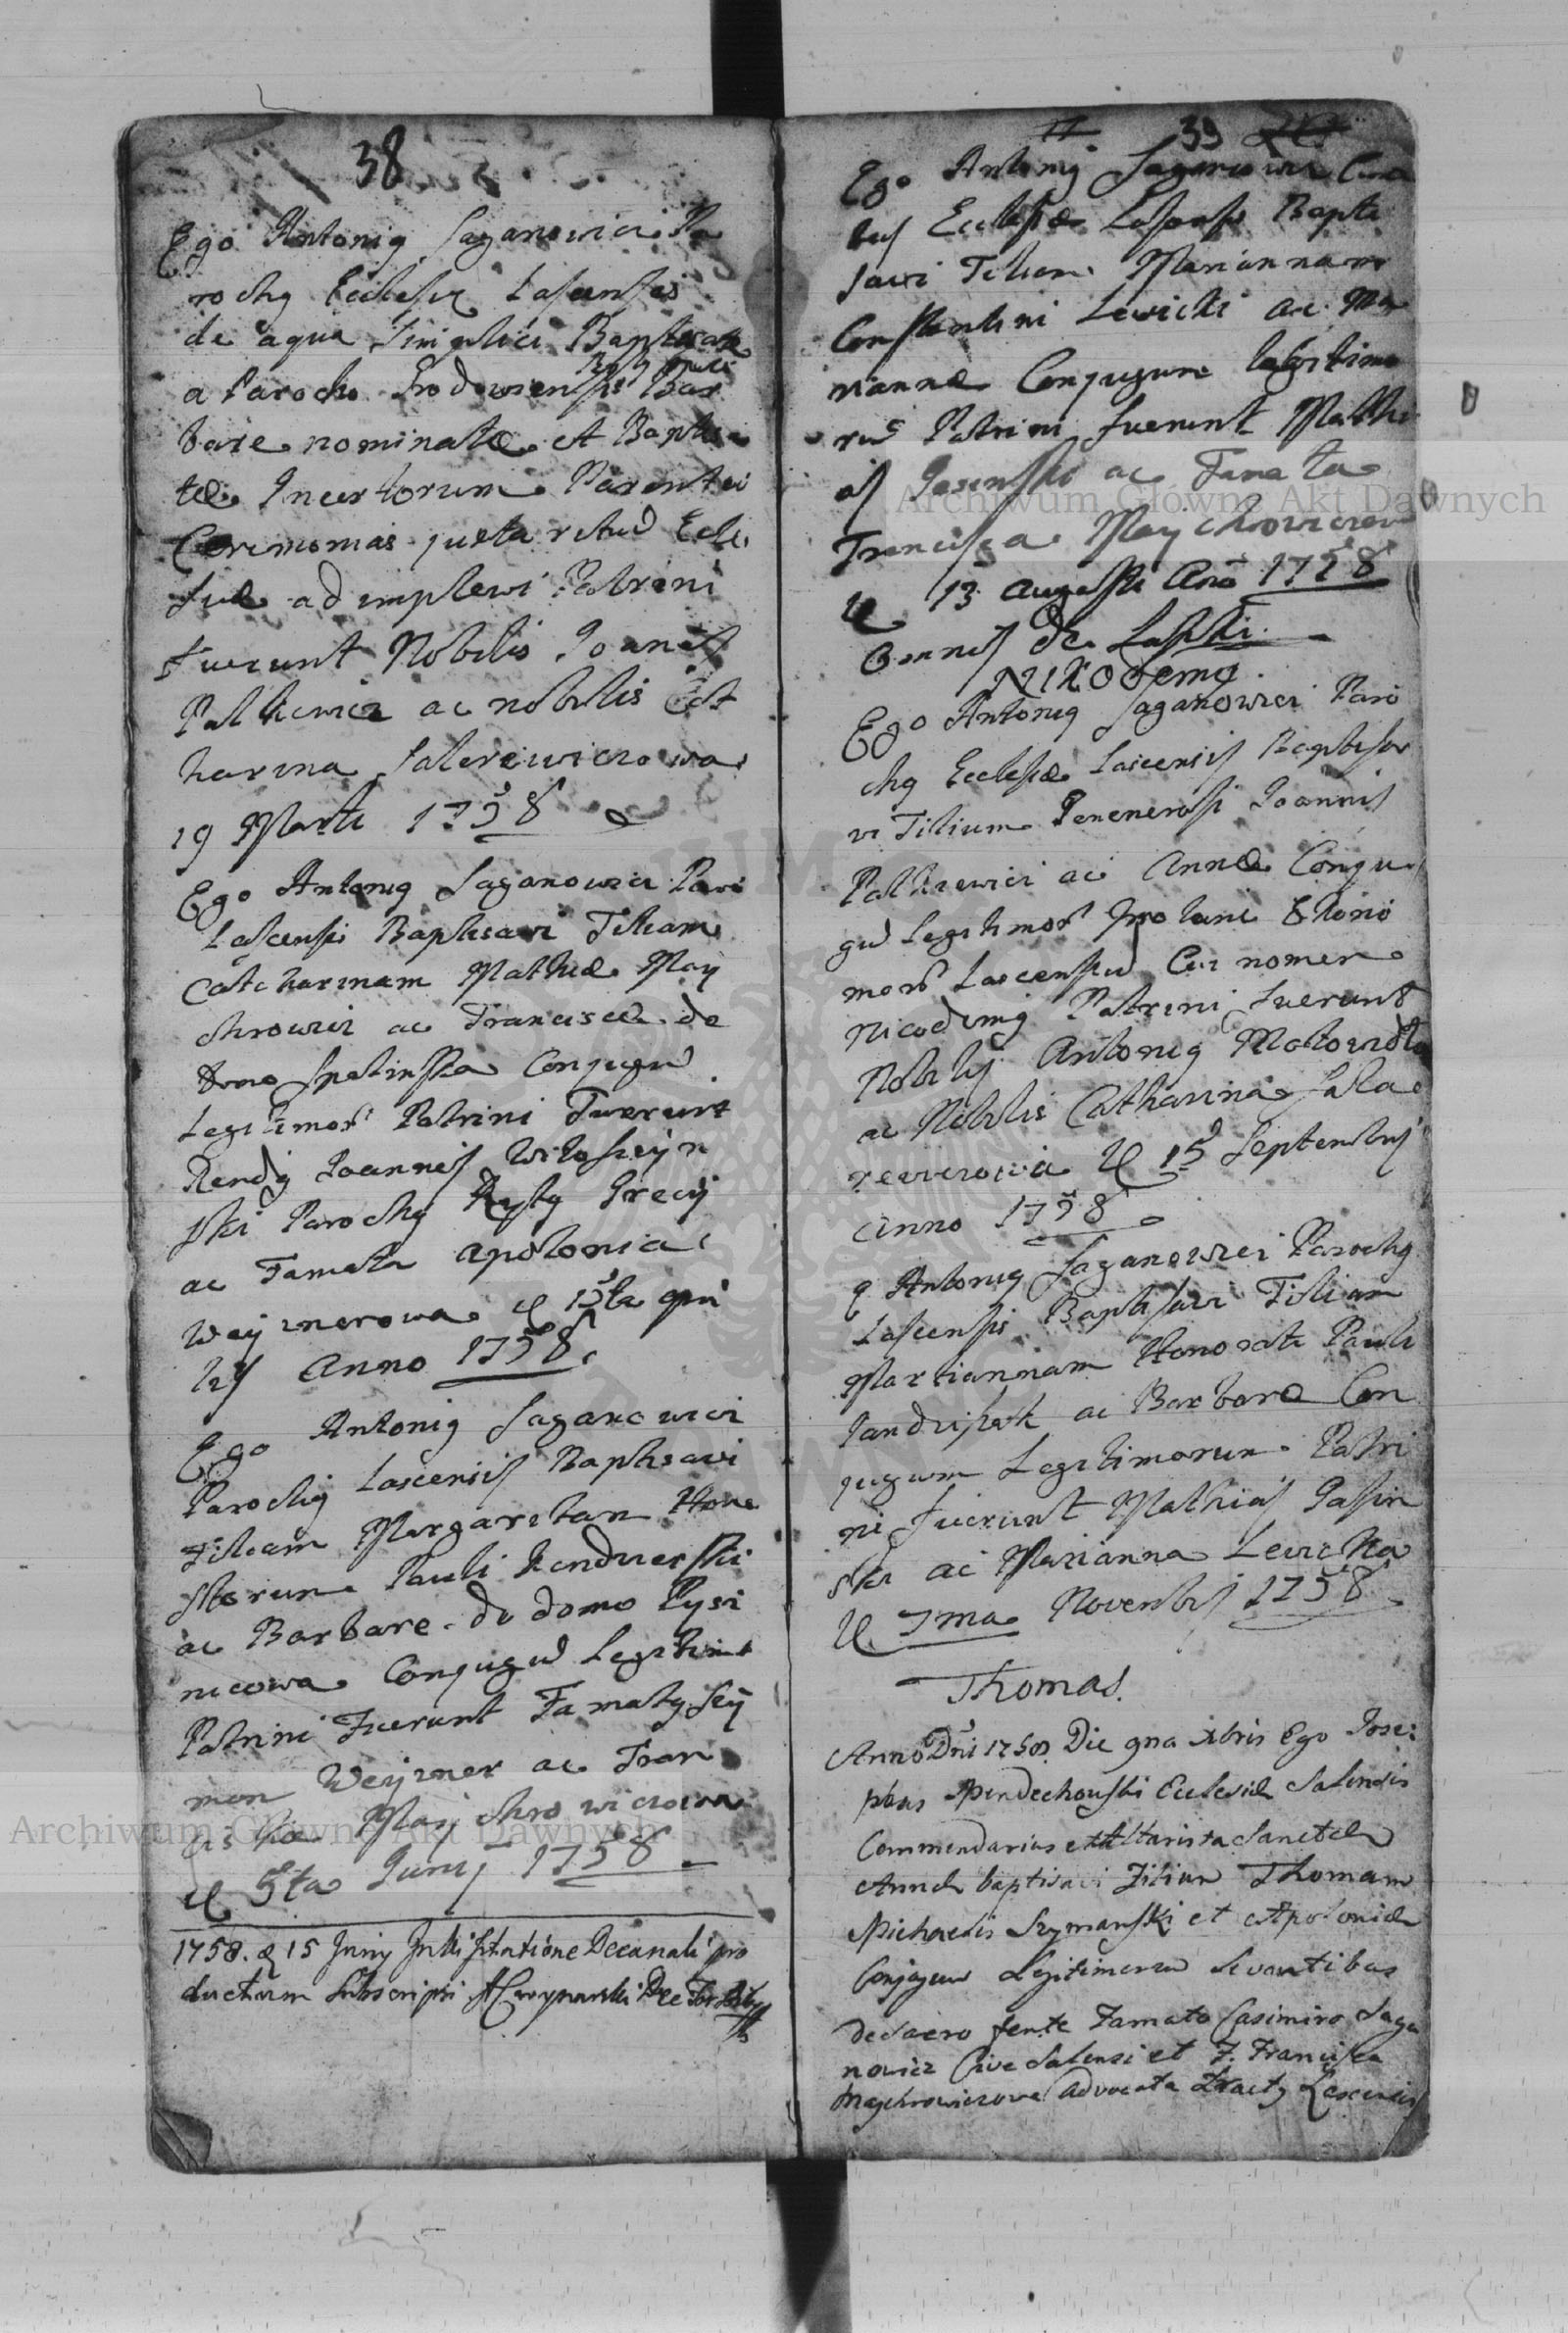 38
Ego Antonig Saganowicz Pa
rochg Ecclesie Lascensis
de aqua simplici Baptizate
a Parocho Grodowiensi Bar
bare nominatæ et Baptisa
tæ Incertorum Parentū
Ceremonias juxta ritūs Eccle
siæ adimplevi Patrini
fuerunt Nobilis Joanes
Palkiewicz ac nobilis Cat
harina Saleriewiczowa
19 Marti 1758
Ego Antonig Saganowicz Paro
Lascensis Baptisavi Filiam
Catcharinam Mathiæ May
chrowicz ac Franciscæ de
domo Conjugū
Legitimor Patrini Fuerunt
Rendg Joannes Witoszyn
ski Parochg Rytg Grecij
ac Famata apolonia
Weyznerowa d 15ta
Anno 1758
Ego Antonig Saganowicz
Parochg Lascensis Baptisavi
Filiam Margaretam Hone
storum Pauli
ac Barbare de domo
nicowa Conjugū Legitim
Patrini Fuerunt Famatg Szy
mon Weyzner ac Fran
cis ka Maychrowiczowa
d 5ta Junij 1758
1758. d 15 Juny In Visitatione Decanali pro
ductum Subscripsi
39
Ego Antonig Saganowicz Cura
tus Ecclesiæ Lascensis Bapti
savi Filiam Mariannam
Constantini Lewicki ac Ma
riannæ Conjugum legitimo
rum Patrini fuerunt Mathi
as Jasinski ac Famata
Francisca Maychrowiczow
d 13 Augusti Ano 1758
Omnes de Laszki
Nikodemg
Ego Antonig Saganowicz Paro
chg Ecclesiæ Lascensis Baptisa
vi Filium Generosi Joannis
Palkiewicz ac Annæ Conju
gū Legitimor
mor Lascensiū Cui nomen
Nicodemg Patrini fuerunt
Nobilis Antonig Makowski
ac Nobilis Catharina Sala
rewiczowa d 15 Septembris
Anno 1758
E Antonig Saganowicz Parochg
Lascensis Baptisavi Filiam
Martiannam Honorati Pauli
ac Barbaræ Con
jugum Legitimorum Patri
ni fuerunt Mathias Jasin
ski ac Marianna Lewicka
d Ima Novembris 1758
Thomas.
Anno Dni 1758 Die 9na Xbris Ego Jose:
phus Mendechowski Ecclesiæ Salensis
Commendarius et Altarista Sanctæ
Annæ baptisavi Filium Thomam
Michaelis Szymanski et Apoloniæ
Conjugum Legitimorum Levantibus
de Sacro fonte Famato Casimiro Saga
nowicz Cive Salensi et F. Francisca
Maychrowiczowa Advocata Lascensis